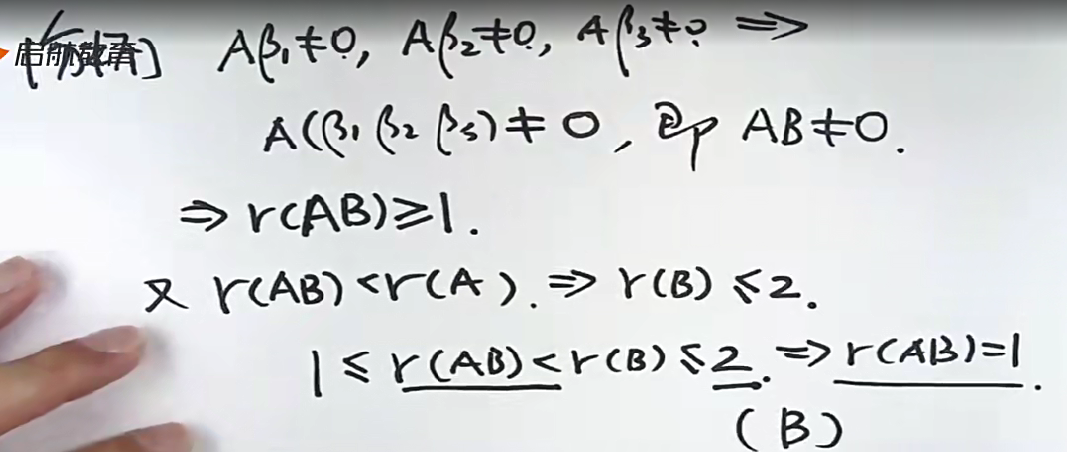 启航教育
[解] Aβ₁≠0, Aβ₂≠0, Aβ₃≠0 ⇒
A(β₁ β₂ β₃)≠0, 即 AB≠0.
⇒ r(AB)≥1.
又 r(AB)<r(A). ⇒ r(B)≤2.
1≤r(AB)<r(B)≤2. ⇒ r(AB)=1.
(B)